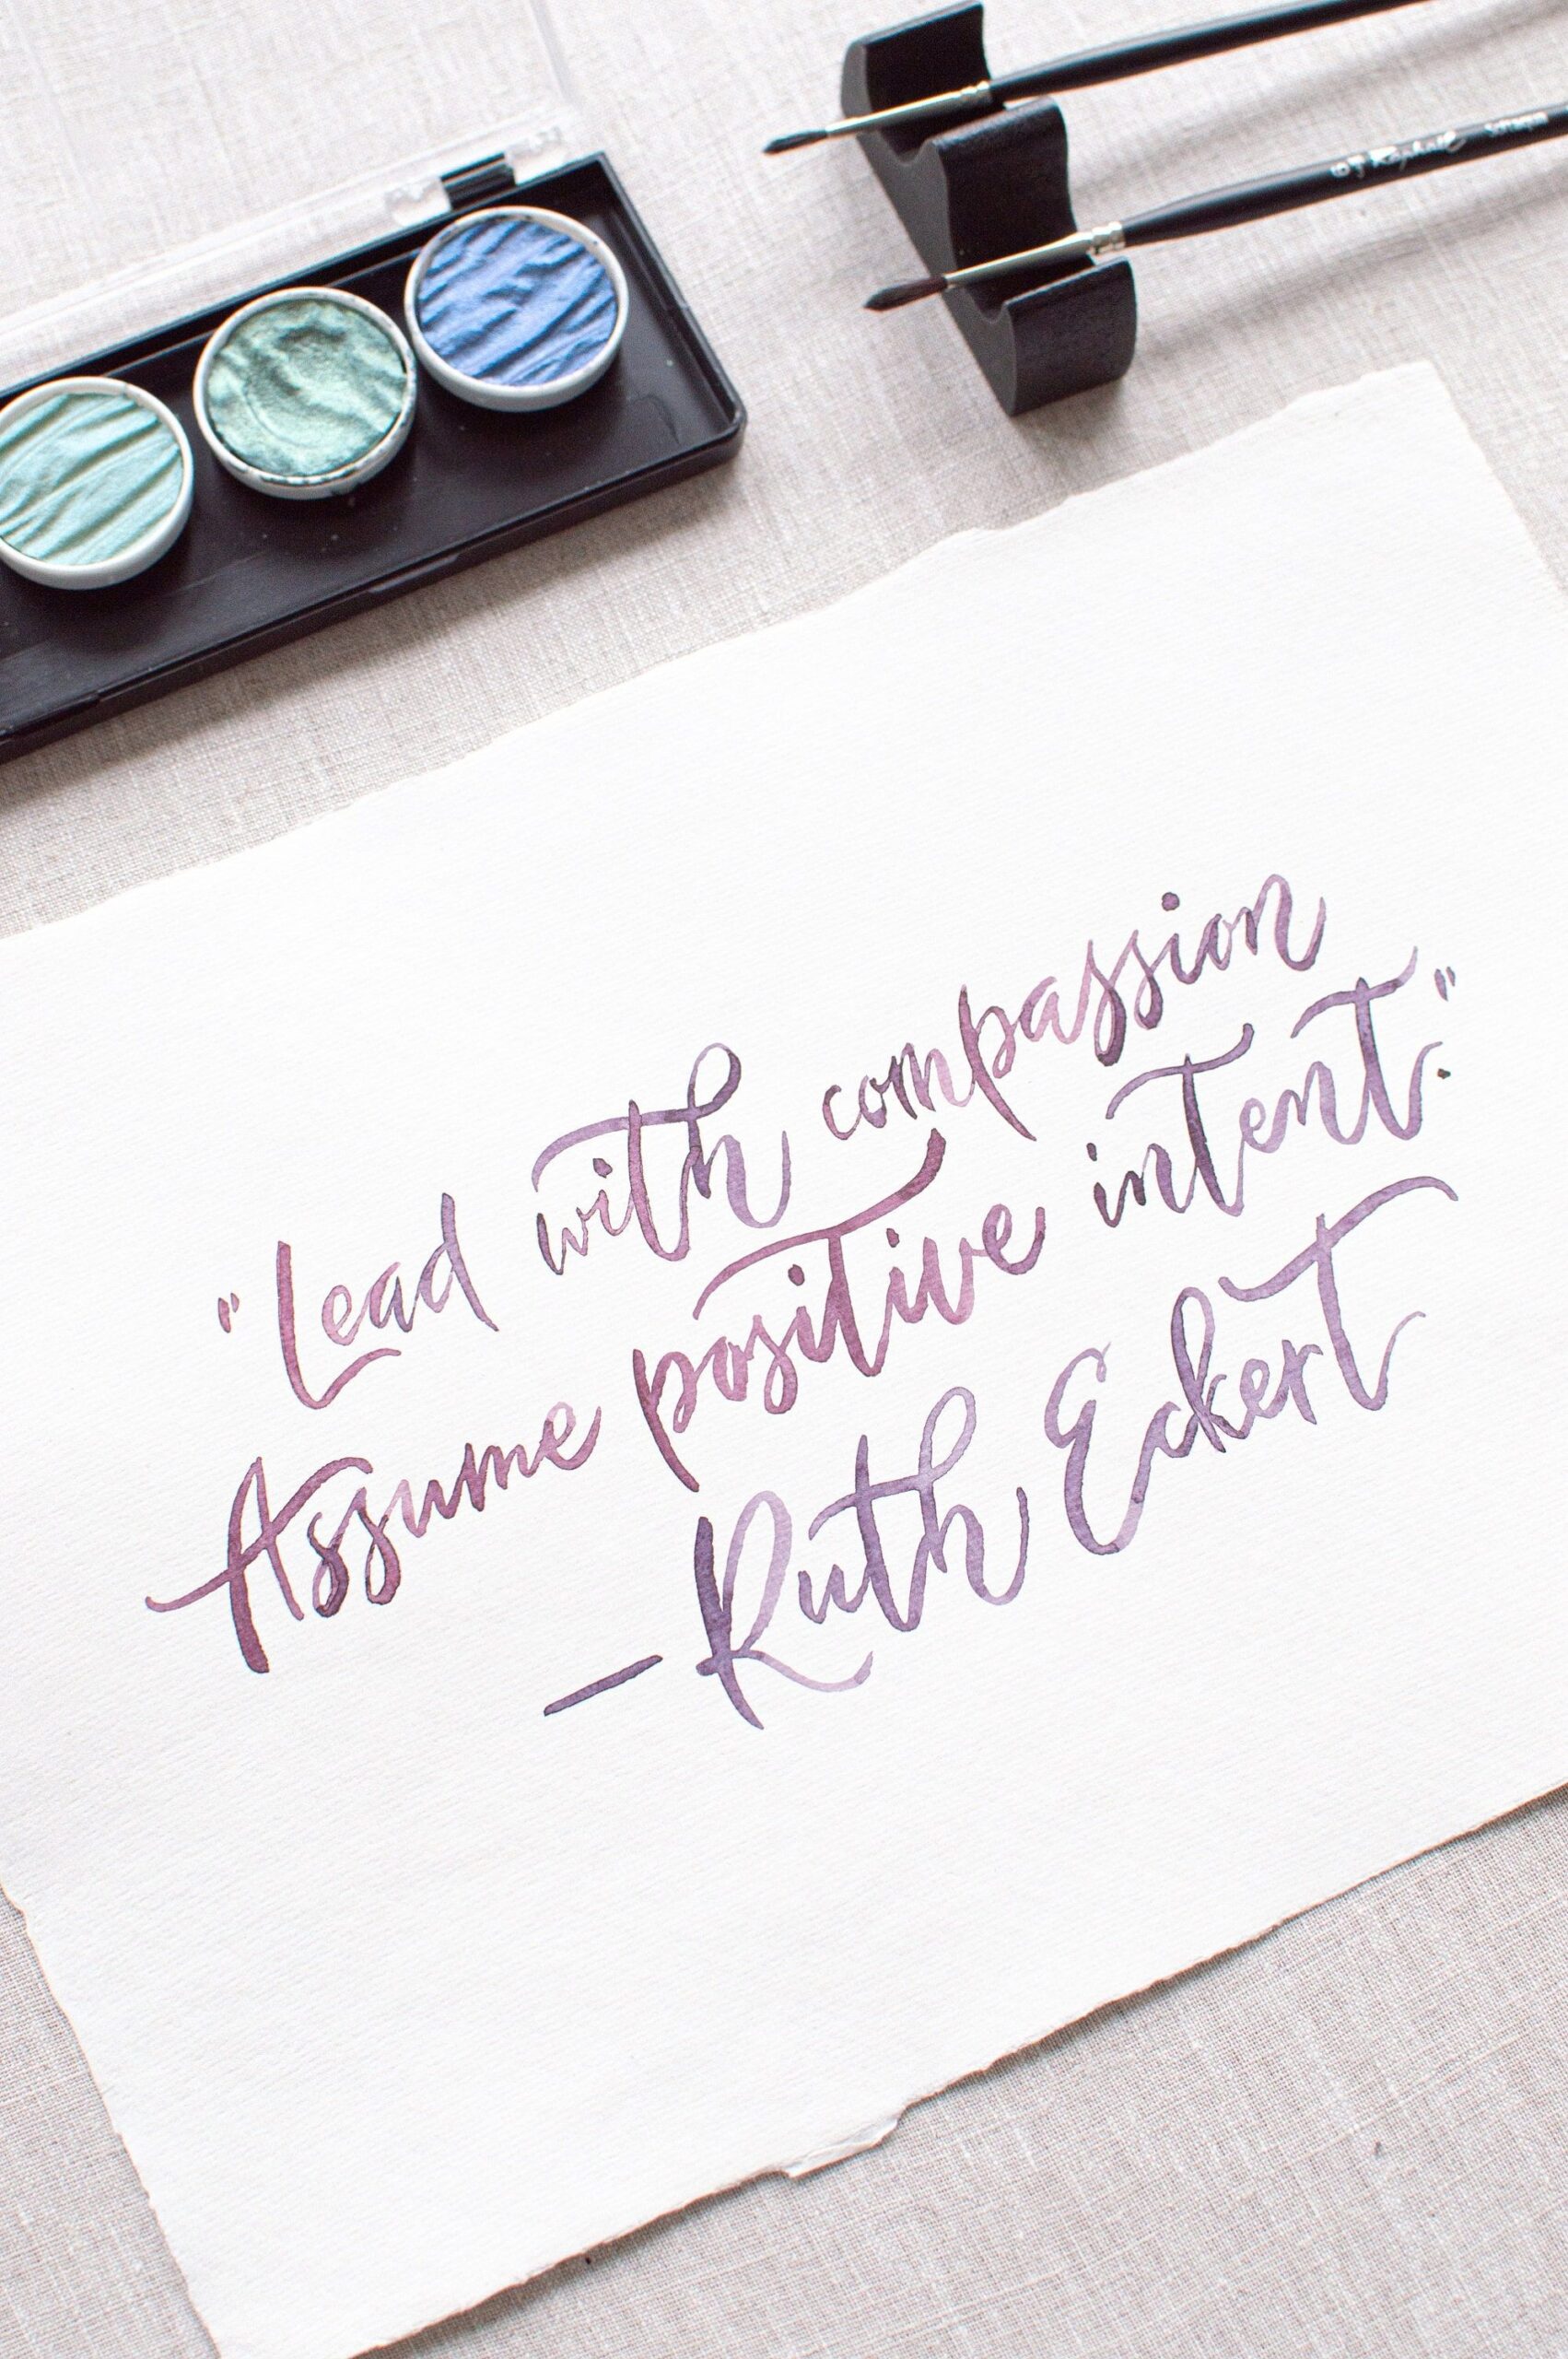 Raphaël
"Lead with compassion
Assume positive intent."
—Ruth Eckert